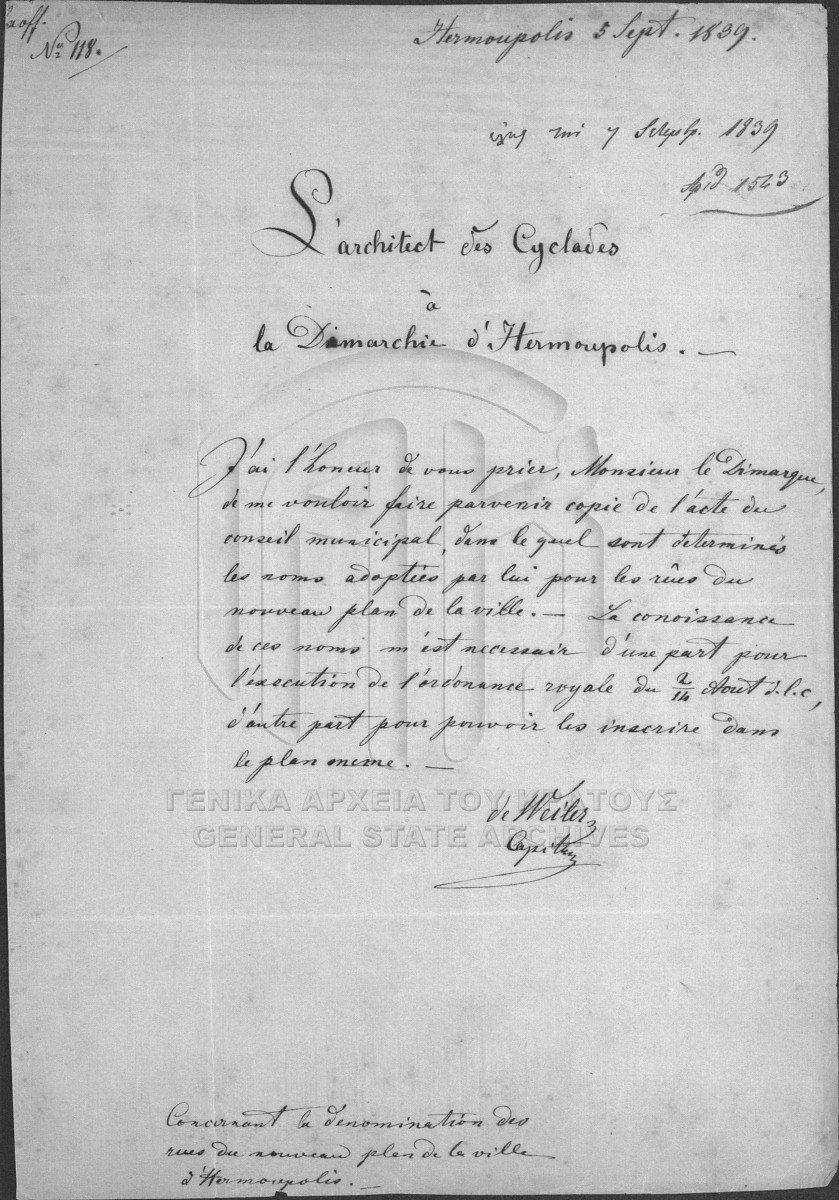 Nº 118.
Hermoupolis 5 Sept. 1839.
7 Σεπτβ. 1839
Αριθ 1543
L'architect des Cyclades
à
la Dimarchie d'Hermoupolis. —
J'ai l'honeur de vous prier, Monsieur le Dimarque,
de me vouloir faire parvenir copie de l'acte du
conseil municipal, dans le quel sont determinés
les noms adoptées par lui pour les rûes du
nouveau plan de la ville. — La conoissance
de ces noms m'est necessair d'une part pour
l'éxecution de l'ordonance royale du 2/14 Aout d.l.c,
d'autre part pour pouvoir les inscrire dans
le plan meme. —
ΓΕΝΙΚΑ ΑΡΧΕΙΑ ΤΟΥ ΚΡΑΤΟΥΣ
GENERAL STATE ARCHIVES
de Weiler
Capitain
Concernant la denomination des
rues du nouveau plan de la ville
d'Hermoupolis. —